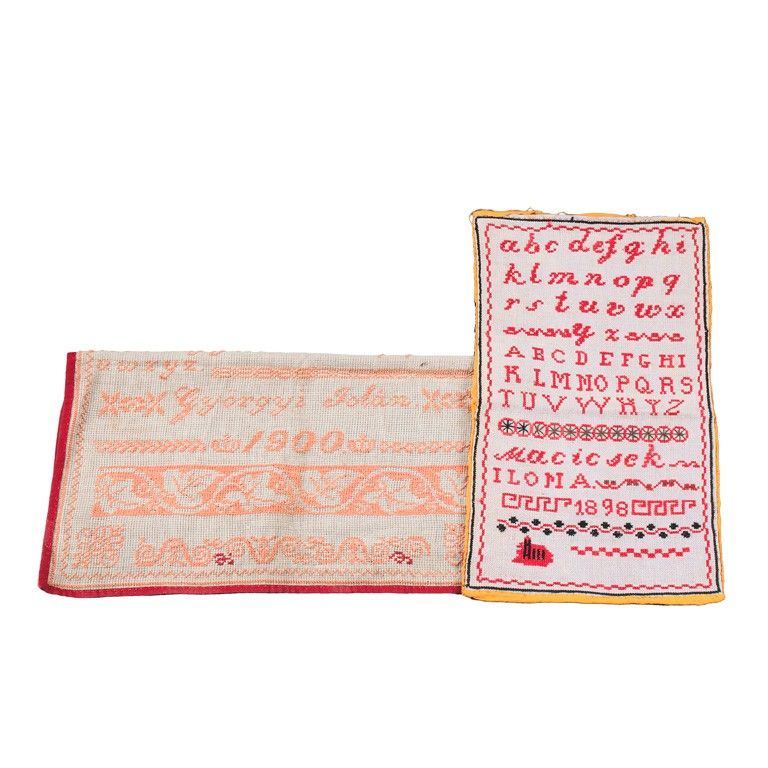 Györgyi Iolán
1900.
abcdefghi
klmnopq
rstuvwx
yz
ABCDEFGHI
KLMNOPQRS
TUVVWXYZ
Macicsek
ILONA
1898